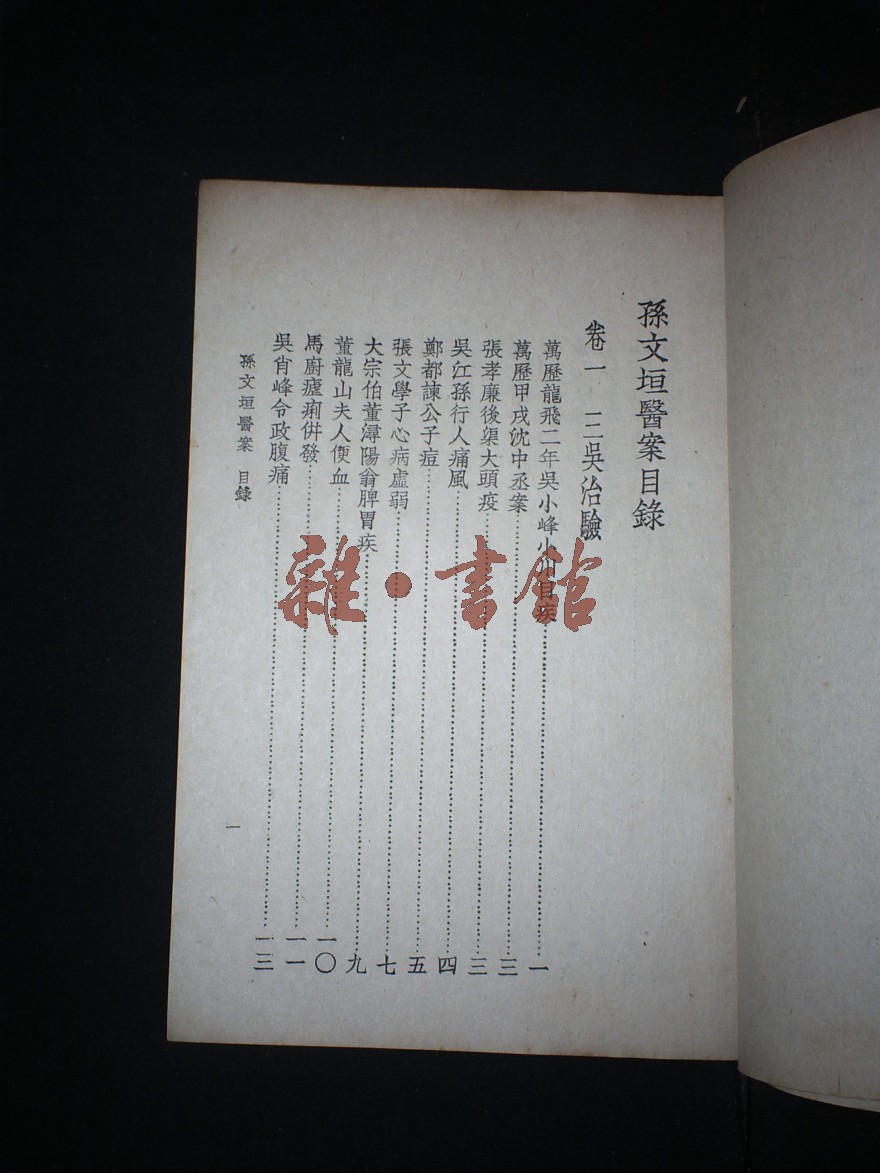 孫文垣醫案目錄
卷一　三吳治驗
萬歷龍飛二年吳小峰小川目疾……一
萬歷甲戌沈中丞案……三
張孝廉後渠大頭疫……三
吳江孫行人痛風……四
鄭都諫公子痘……五
張文學子心病虛弱……七
大宗伯董潯陽翁脾胃疾……九
董龍山夫人便血……一〇
馬廚瘧痢併發……一一
吳肖峰令政腹痛……一三
孫文垣醫案　目錄
一
雜·書館